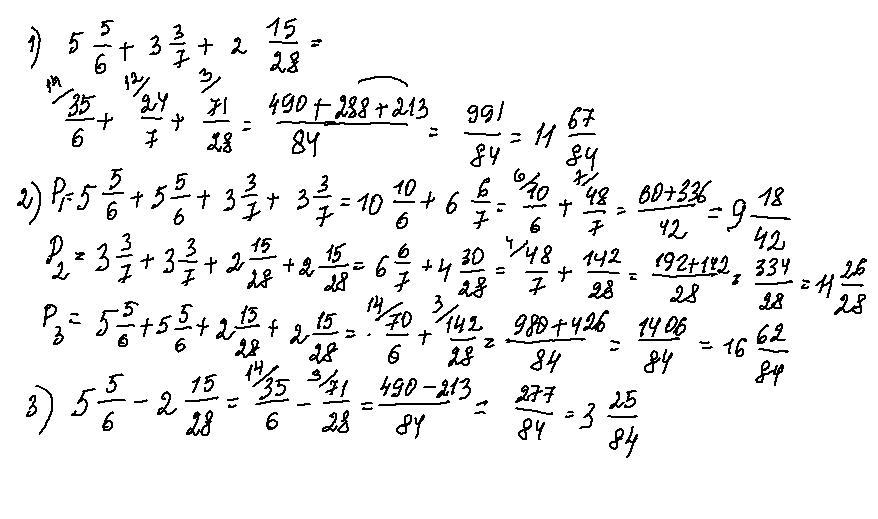 1) 5 5/6 + 3 3/7 + 2 15/28 =
14/ 35/6 + 12/ 24/7 + 3/ 71/28 = (490 + 288 + 213)/84 = 991/84 = 11 67/84
2) P₁ = 5 5/6 + 5 5/6 + 3 3/7 + 3 3/7 = 10 10/6 + 6 6/7 = 6/ 10/6 + 7/ 48/7 = (60+336)/42 = 9 18/42
P₂ = 3 3/7 + 3 3/7 + 2 15/28 + 2 15/28 = 6 6/7 + 4 30/28 = 4/ 48/7 + 142/28 = (192+142)/28 = 334/28 = 11 26/28
P₃ = 5 5/6 + 5 5/6 + 2 15/28 + 2 15/28 = 14/ 70/6 + 3/ 142/28 = (980 + 426)/84 = 1406/84 = 16 62/84
3) 5 5/6 - 2 15/28 = 14/ 35/6 - 3/ 71/28 = (490 - 213)/84 = 277/84 = 3 25/84